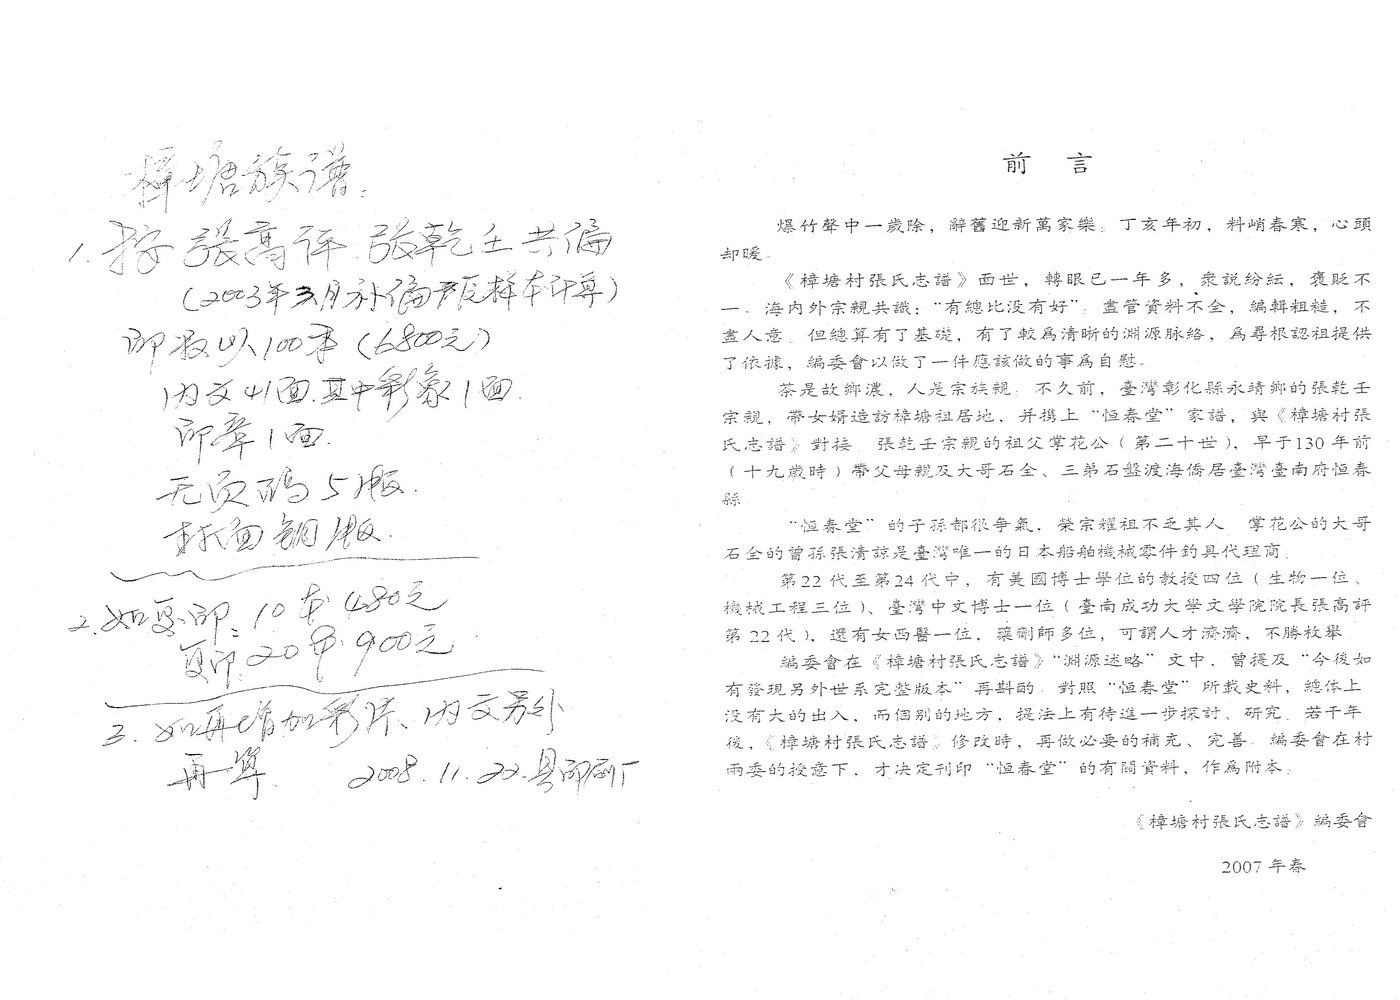 樟塘族谱.
1. 按 張高评 張乾壬共偏
(2003年3月补偏
样本计算)
印数以100本 (6800元)
内文41面.其中彩象1面.
印章1面.
无页码5版.
封面铜版.
2. 如复印: 10本 480元
复印: 20本 900元
3. 如再增加彩片、内文另外
再算. 2008.11.22.县印刷厂
前言
爆竹聲中一歲除，辭舊迎新萬家樂。丁亥年初，料峭春寒，心頭
却暖。
《樟塘村張氏志譜》面世，轉眼已一年多，衆説紛紜，褒貶不
一。海内外宗親共識：“有總比没有好”。盡管資料不全，編輯粗糙，不
盡人意。但總算有了基礎，有了較爲清晰的淵源脉絡，爲尋根認祖提供
了依據，編委會以做了一件應該做的事爲自慰。
茶是故鄉濃，人是宗族親。不久前，臺灣彰化縣永靖鄉的張乾壬
宗親，帶女婿造訪樟塘祖居地，并携上“恒春堂”家譜，與《樟塘村張
氏志譜》對接。張乾壬宗親的祖父掌花公（第二十世），早于130年前
（十九歲時）帶父母親及大哥石全、三弟石盤渡海僑居臺灣臺南府恒春
縣
“恒春堂”的子孫都很争氣，榮宗耀祖不乏其人。掌花公的大哥
石全的曾孫張清諒是臺灣唯一的日本船舶機械零件釣具代理商。
第22代至第24代中，有美國博士學位的教授四位（生物一位、
機械工程三位）、臺灣中文博士一位（臺南成功大學文學院院長張高評
第22代），還有女西醫一位，藥劑師多位，可謂人才濟濟，不勝枚舉
編委會在《樟塘村張氏志譜》“淵源述略”文中，曾提及“今後如
有發現另外世系完整版本”再斟酌。對照“恒春堂”所載史料，總体上
没有大的出入，而個别的地方，提法上有待進一步探討、研究。若干年
後，《樟塘村張氏志譜》修改時，再做必要的補充、完善。編委會在村
兩委的授意下，才决定刊印“恒春堂”的有關資料，作爲附本。
《樟塘村張氏志譜》編委會
2007年春